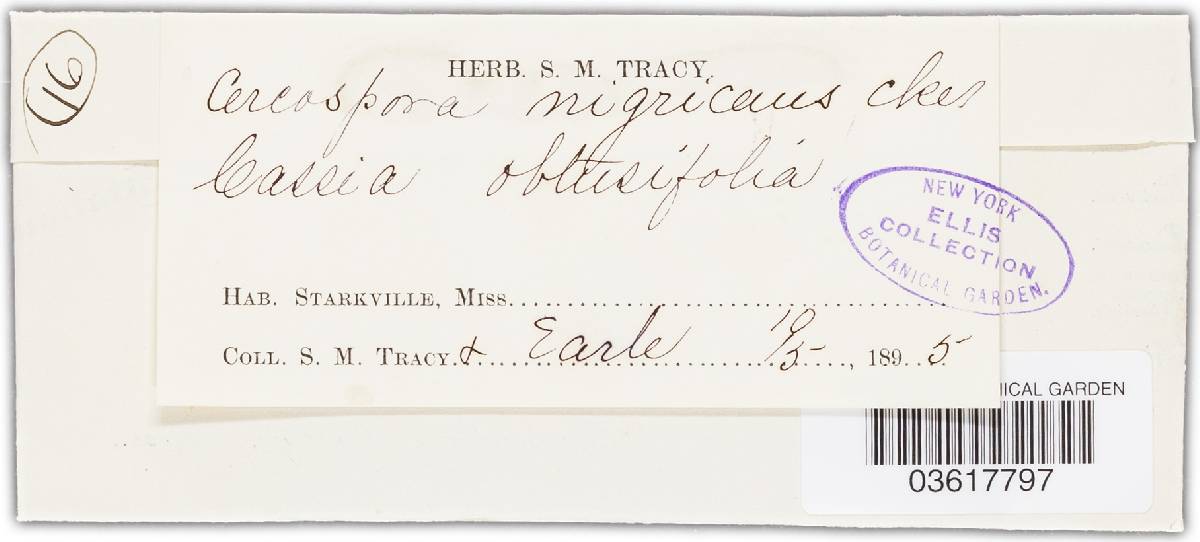 116
HERB. S. M. TRACY.
Cercospora nigricans cke.
Cassia obtusifolia
NEW YORK
ELLIS
COLLECTION
BOTANICAL GARDEN.
HAB. STARKVILLE, MISS.
COLL. S. M. TRACY. & Earle 10/5, 1895
NICAL GARDEN
03617797